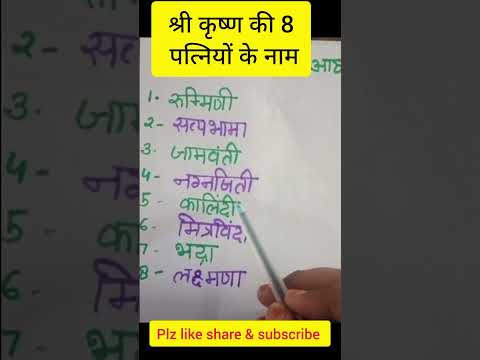 श्री कृष्ण की 8
पत्नियों के नाम
1- रुक्मिणी
2- सत्यभामा
3- जामवंती
4- नग्नजिती
5- कालिंदी
6- मित्रविंदा
7- भद्रा
8- लक्ष्मणा
Plz like share & subscribe